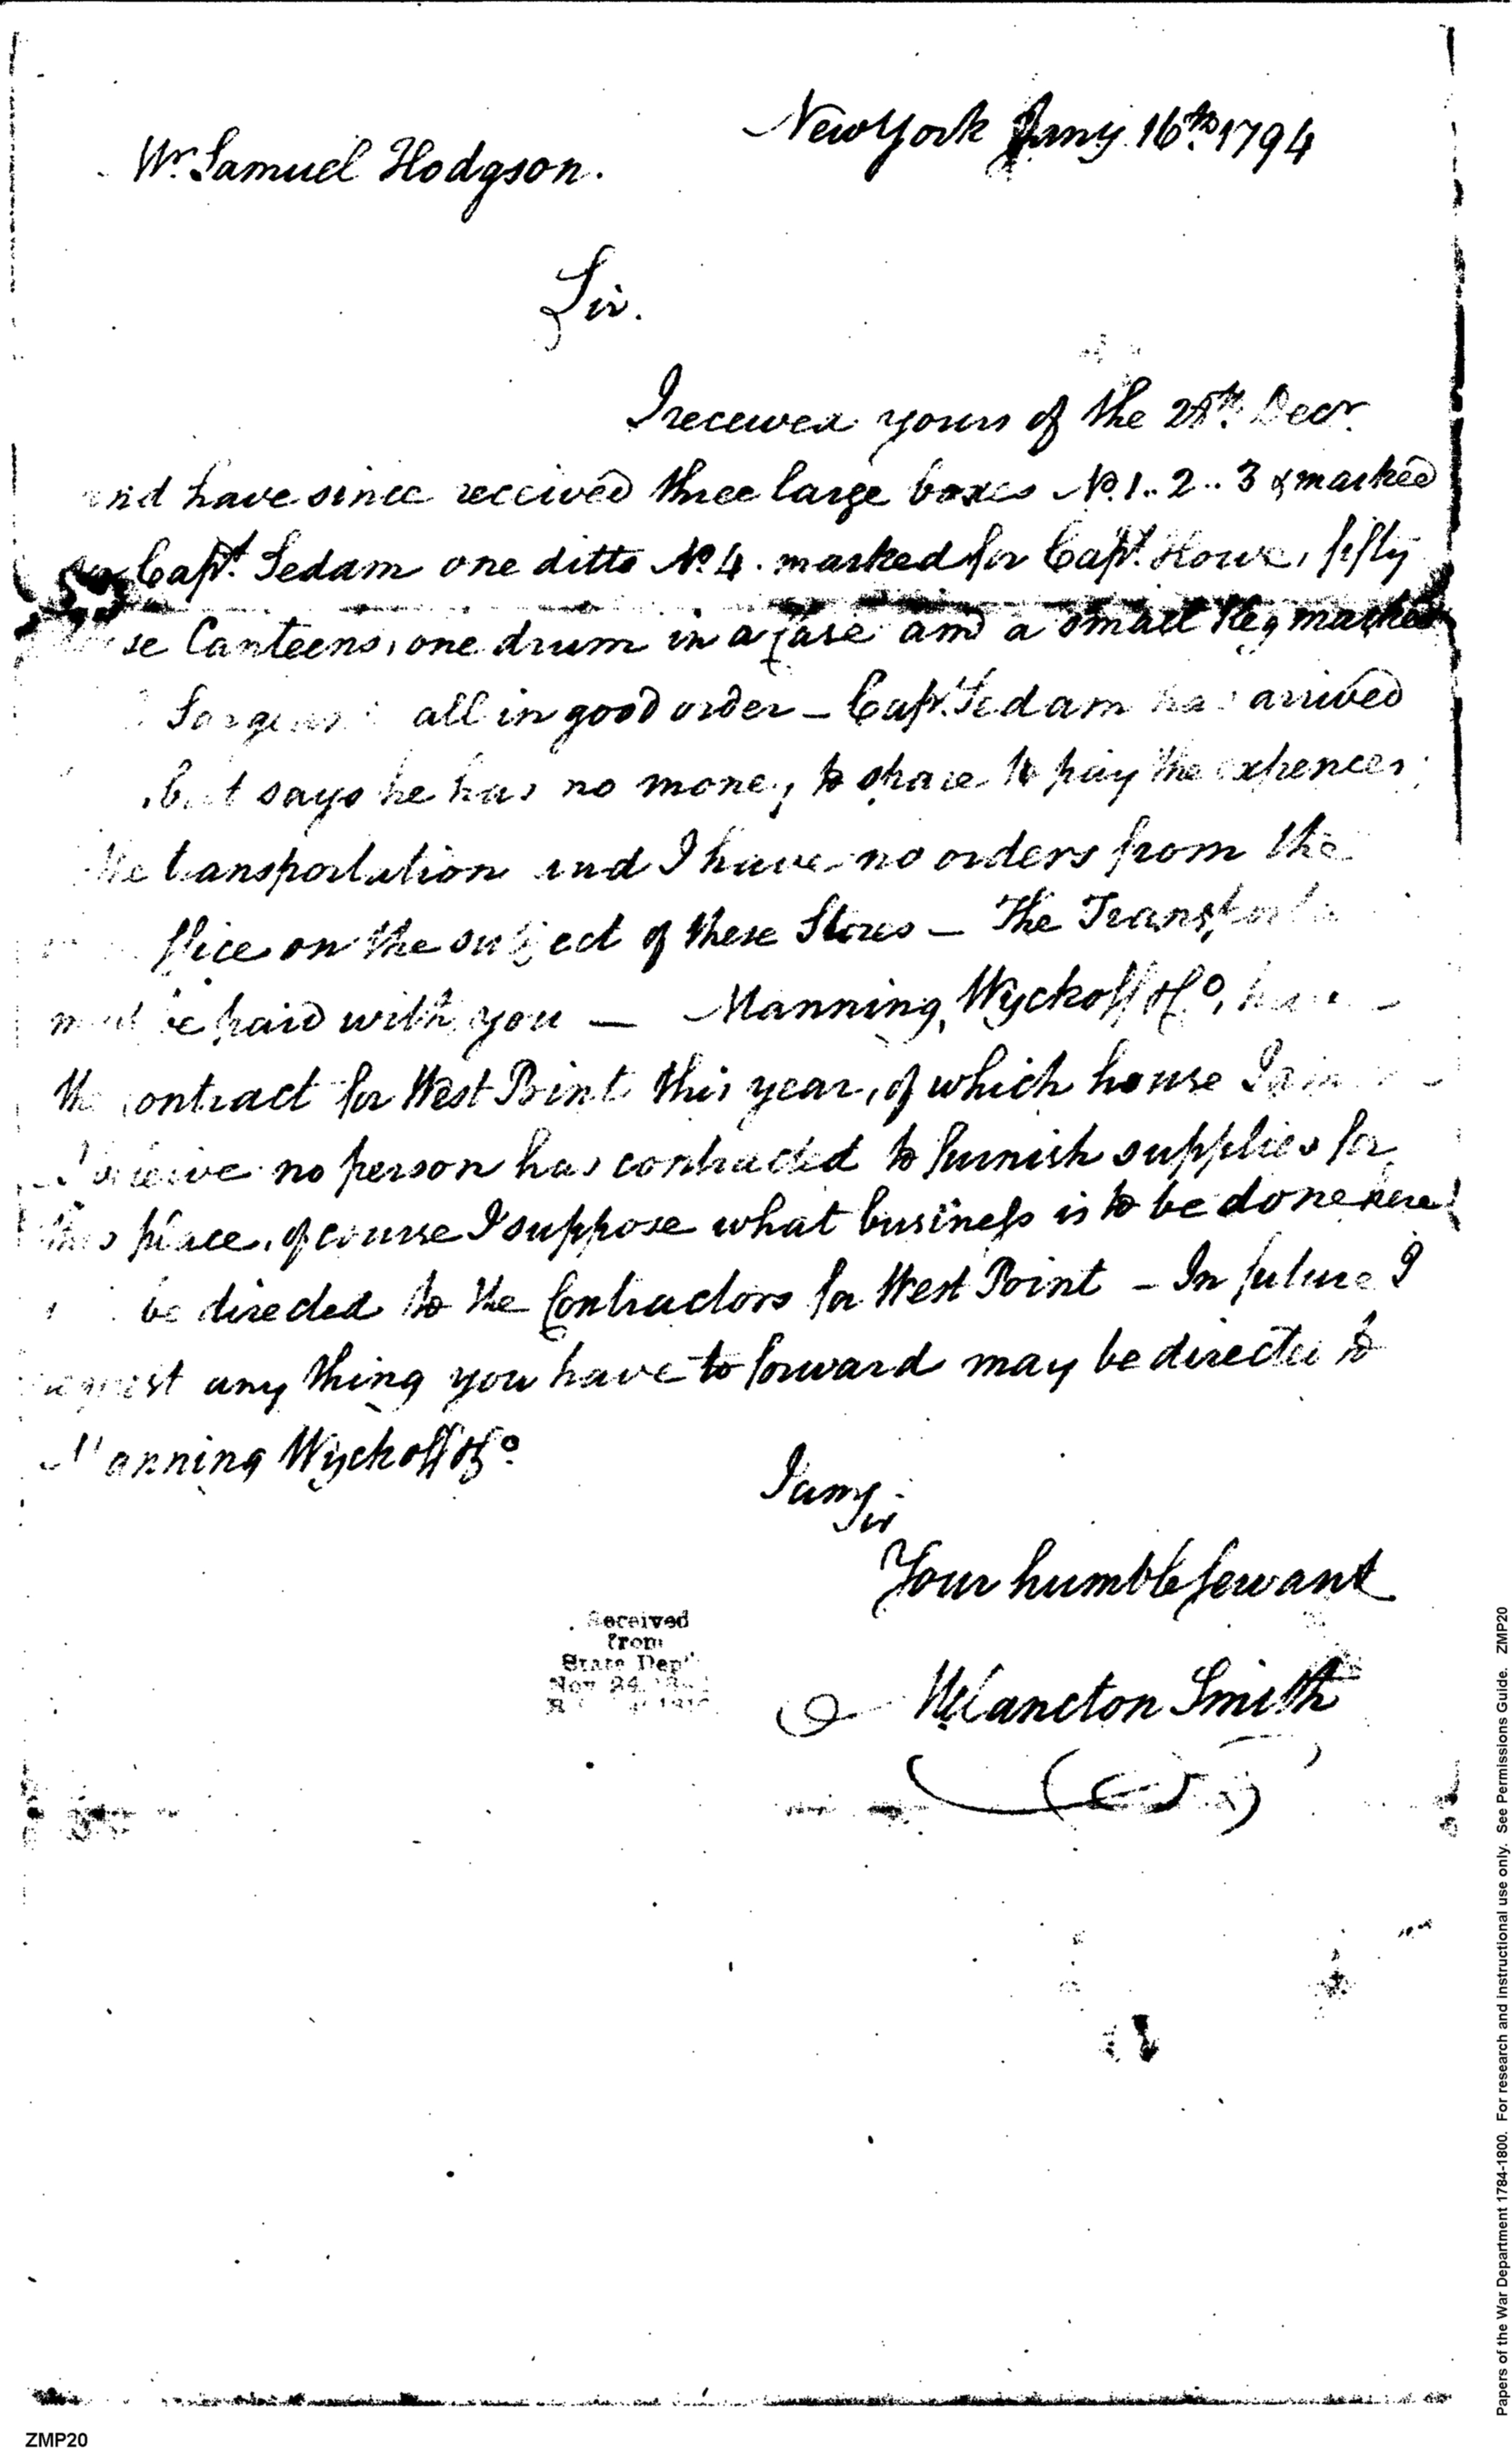 New York Jany 16th 1794
Mr. Samuel Hodgson.
Sir.
I received yours of the 28th Decr.
and have since received three large boxes No. 1.. 2.. 3 & marked
for Capt. Sedam one ditto No. 4. marked for Capt. Howe, fifty
Canteens, one drum in a Case and a small Keg marked
all in good order – Capt. Sedam has arrived
but says he has no money to spare to pay the expences
the transportation and I have no orders from the
office on the subject of these Stores – The
must be paid with you — Manning, Wyckoff & Co, have
the contract for West Point this year, of which house I am
no person has contracted to furnish supplies for
this place, of course I suppose what business is to be done here
be directed to the Contractors for West Point – In future I
request any thing you have to forward may be directed to
Manning Wyckoff & Co
I am
Sir
Your humble Servant
Melancton Smith
Received
from
State Dep't
Nov 24
ZMP20
Papers of the War Department 1784-1800. For research and instructional use only. See Permissions Guide. ZMP20